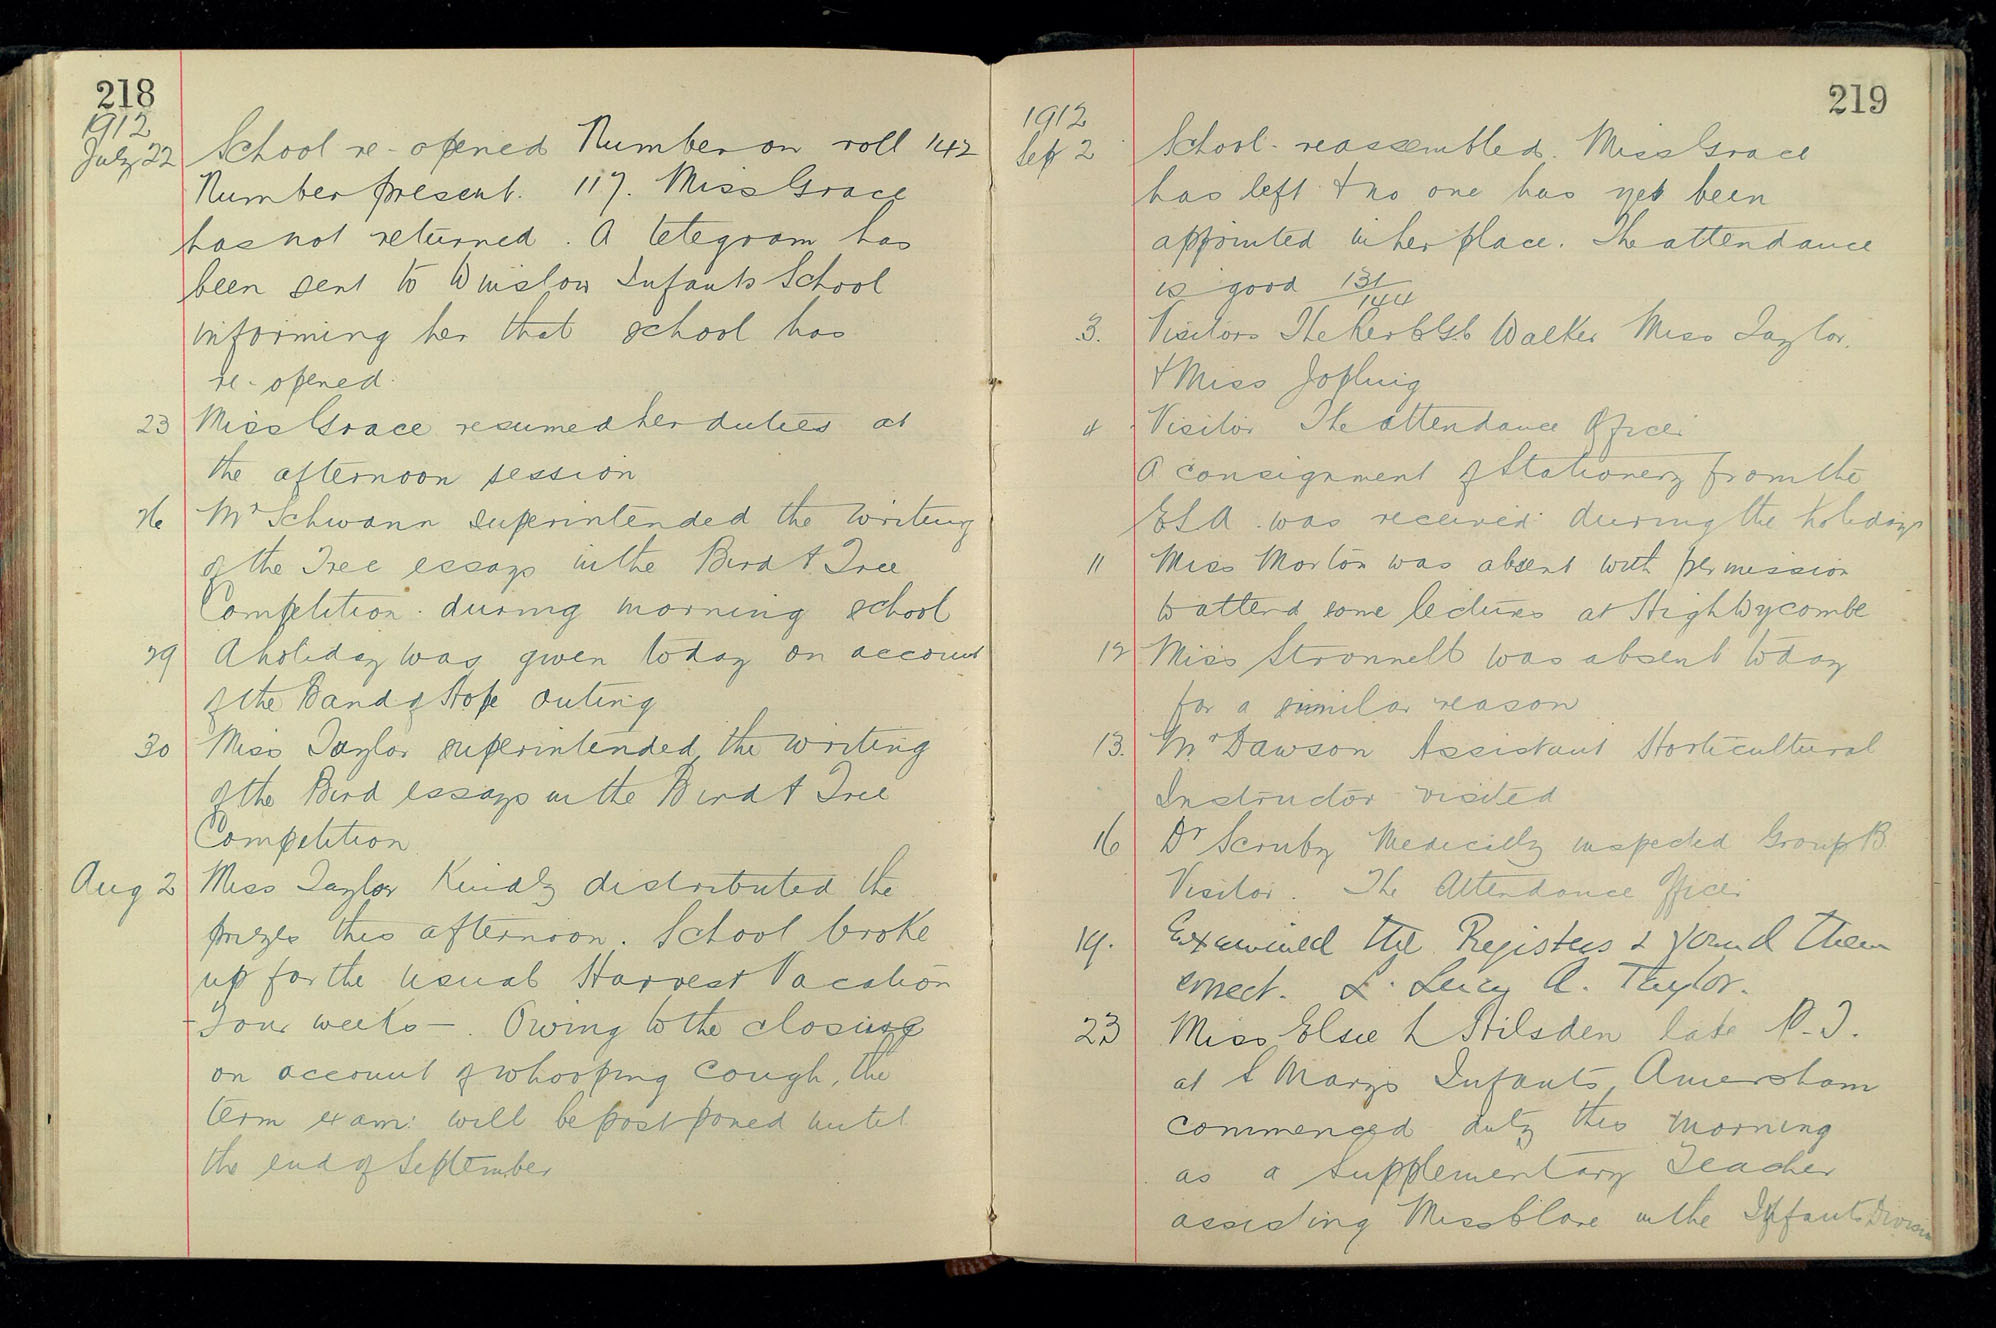 218
1912
July 22 School re-opened Number on roll 142
Number present. 117. Miss Grace
has not returned. A telegram has
been sent to Winslow Infants School
informing her that school has
re-opened.
23 Miss Grace resumed her duties at
the afternoon session
26 Mr Schwann superintended the writing
of the Tree essays in the Bird & Tree
Competition. during morning school
29 A holiday was given today on account
of the Band of Hope outing
30 Miss Taylor superintended the writing
of the Bird essays in the Bird & Tree
Competition
Aug 2 Miss Taylor kindly distributed the
prizes this afternoon. School broke
up for the usual Harvest Vacation
- Four weeks -. Owing to the closing
on account of whooping cough, the
term exam: will be postponed until
the end of September
219
1912
Sep 2 School reassembled. Miss Grace
has left & no one has yet been
appointed in her place. The attendance
is good 131/144
3. Visitors The Rev Walker Miss Taylor.
& Miss Jopling
4 Visitor The attendance Officer
A consignment of Stationery from the
was received during the holidays
11 Miss Morton was absent with permission
to attend some lectures at High Wycombe
12 Miss Stronnell was absent today
for a similar reason
13. Mr Dawson Assistant Horticultural
Instructor visited
16 Dr Scruby Medically inspected Group B.
Visitor. The Attendance Officer
19. Examined the Registers & found them
correct. L. Lucy A. Taylor.
23 Miss Elsie L Hilsden late P.T.
at S Marys Infants, Amersham
commenced duty this morning
as a Supplementary Teacher
assisting Miss Clare in the Infants Division